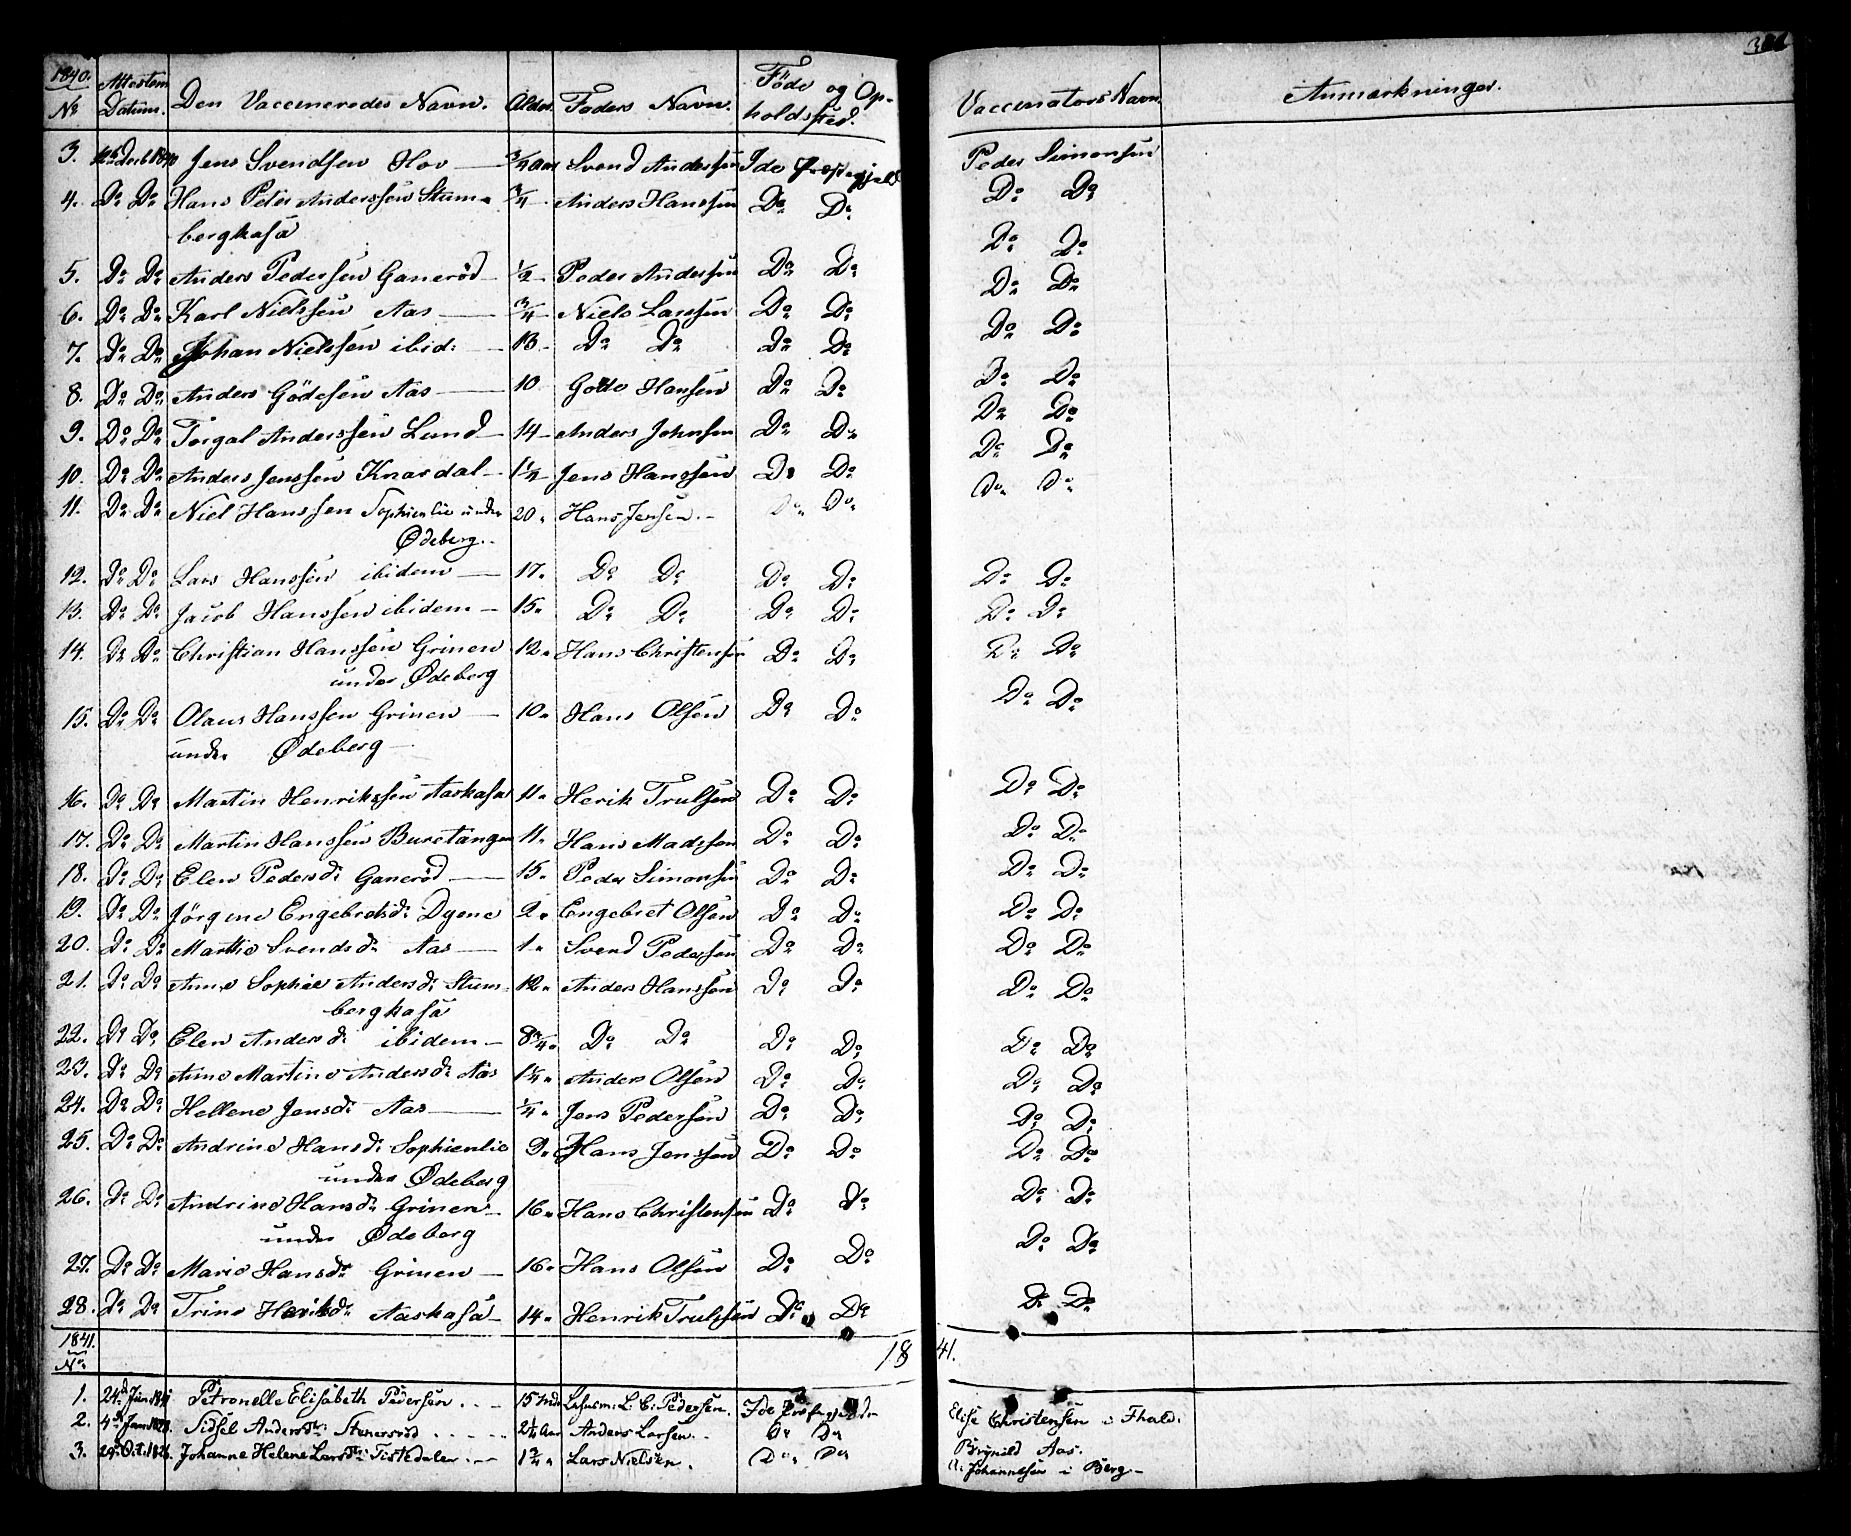 1840.
No Attestens Datum. Den Vaccineredes Navn. Alder. Faders Navn. Föde og Op-
holdssted. Vaccinators Navn Anmærkninger.
3. Jens Svendsen Hov 3/4 Aar Svend Andersen Ide Præstegjeld Peder Simonsen
4. Do Do Hans Peter Anderssen Stum- 3/4 Anders Hanssen Do Do Do Do
bergkasa
5. Do Do Anders Pedersen Ganeröd 1/2 Peder Andersen Do Do Do Do
6. Do Do Karl Nielssen Aas 3/4 Niels Larssen Do Do Do Do
7. Do Do Johan Nielssen ibid: 13 Do Do Do Do Do Do
8. Do Do Anders Gödesen Aas 10 Hansen Do Do Do Do
9. Do Do Torgal Anderssen Lund 14 Anders Johnsen Do Do Do Do
10. Do Do Anders Jenssen Knardal 1 1/4 Jens Hanssen Do Do Do Do
11. Do Do Niel Hanssen Sophienlie under 20 Hans Jensen Do Do Do Do
Ödeberg
12. Do Do Lars Hanssen ibidem 17 Do Do Do Do Do Do
13. Do Do Jacob Hanssen ibidem 15 Do Do Do Do Do Do
14. Do Do Christian Hanssen Grinen 12 Hans Christensen Do Do Do Do
under Ödeberg
15. Do Do Olaus Hanssen Grinen 10 Hans Olsen Do Do Do Do
under Ödeberg
16. Do Do Martin Henrikssen Aaskasa 11 Herik Trulsen Do Do Do Do
17. Do Do Martin Hanssen Buretangen 11 Hans Madsen Do Do Do Do
18. Do Do Elen Pedersd: Ganeröd 15 Peder Simonsen Do Do Do Do
19. Do Do Jörgine Engebretsd: Dyene 2 Engebret Olsen Do Do Do Do
20. Do Do Marthe Svendsd: Aas 1 Svend Pedersen Do Do Do Do
21. Do Do Anne Sophie Andersd: Stum- 12 Anders Hanssen Do Do Do Do
bergkasa
22. Do Do Elen Andersd: ibidem 8 3/4 Do Do Do Do Do Do
23. Do Do Anne Martine Andersd: Aas 1 1/4 Anders Olsen Do Do Do Do
24. Do Do Hellene Jensd: Aas 1/4 Jens Pedersen Do Do Do Do
25. Do Do Andrine Hansd: Sophienlie 9 Hans Jenssen Do Do Do Do
under Ödeberg
26. Do Do Andrine Hansd: Grinen 16 Hans Christensen Do Do Do Do
under Ödeberg
27. Do Do Marie Hansd: Grinen 16 Hans Olsen Do Do Do Do
28. Do Do Trine Aaskasa 14 Henrik Trulssen Do Do Do Do
1841. 1841.
No
1. 24d Petronelle Elisabeth Pedersen 15 L. C. Pedersen. Ide Elise Christensen i Fhald.
2. 4d Sidsel Andersdtr: Stenersröd 2 1/4 Aar Anders Larsen Do Do Brynild Aas.
3. Johanne Helene Larsdtr: Tistedalen Lars Nielsen. Do Do Johannesen i Berg